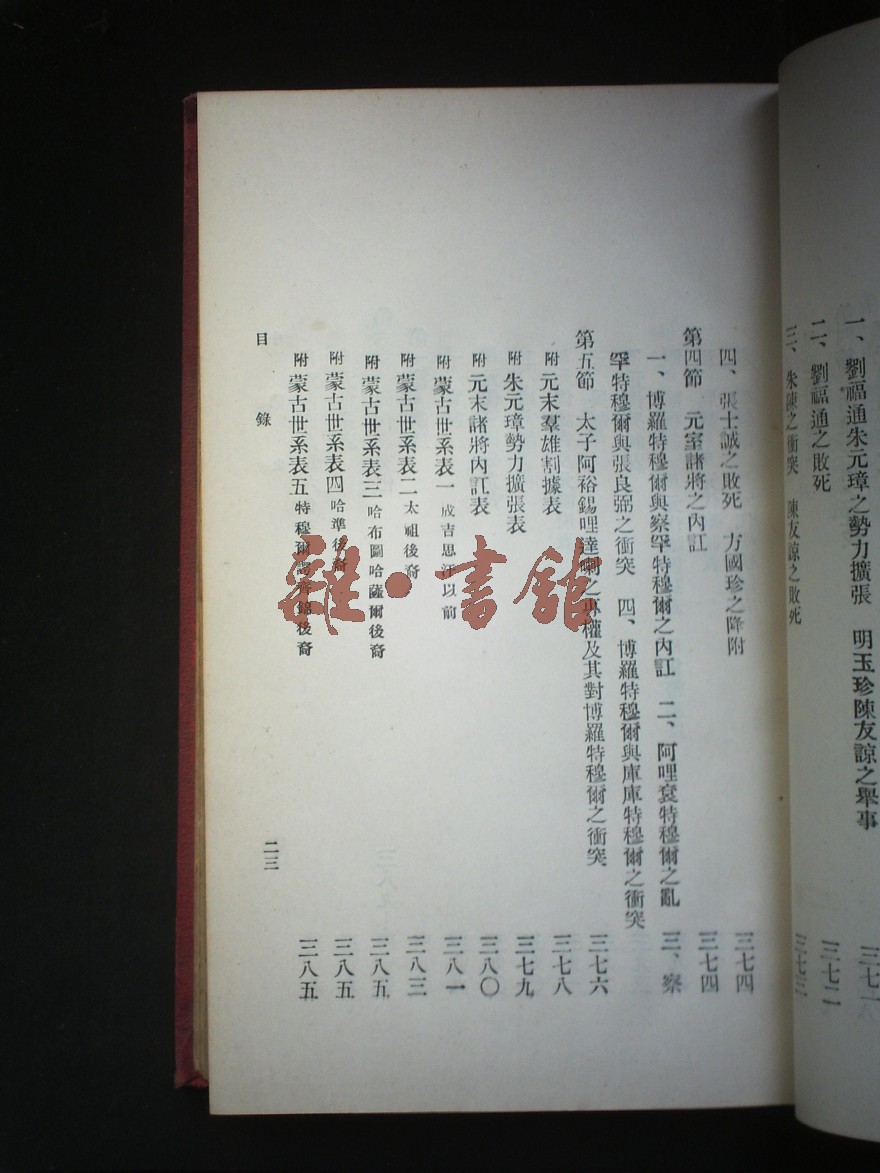 一、劉福通朱元璋之勢力擴張　明玉珍陳友諒之舉事　三七一
二、劉福通之敗死　三七二
三、朱陳之衝突　陳友諒之敗死　三七三
四、張士誠之敗死　方國珍之降附　三七四
第四節　元室諸將之內訌　三七四
一、博羅特穆爾與察罕特穆爾之內訌　二、阿哩袞特穆爾之亂　三、察
罕特穆爾與張良弼之衝突　四、博羅特穆爾與庫庫特穆爾之衝突
第五節　太子阿裕錫哩達喇之專權及其對博羅特穆爾之衝突　三七六
附　元末羣雄割據表　三七八
附　朱元璋勢力擴張表　三七九
附　元末諸將內訌表　三八〇
附　蒙古世系表一　成吉思汗以前　三八一
附　蒙古世系表二　太祖後裔　三八三
附　蒙古世系表三　哈布圖哈薩爾後裔　三八五
附　蒙古世系表四　哈準後裔　三八五
附　蒙古世系表五　特穆爾諤齊錦後裔　三八五
目錄　二三
雜·書館